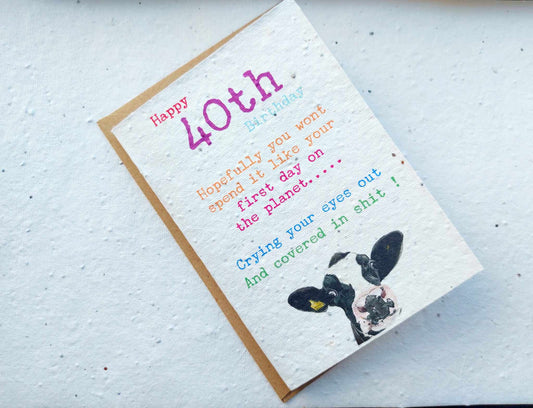 Happy
40th
Birthday
Hopefully you wont
spend it like your
first day on
the planet.....
Crying your eyes out
And covered in shit !